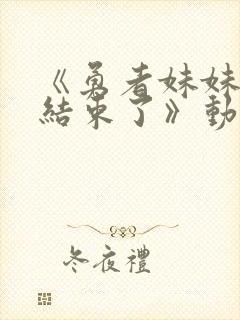 《勇者妹妹
結束了》動
冬夜禮